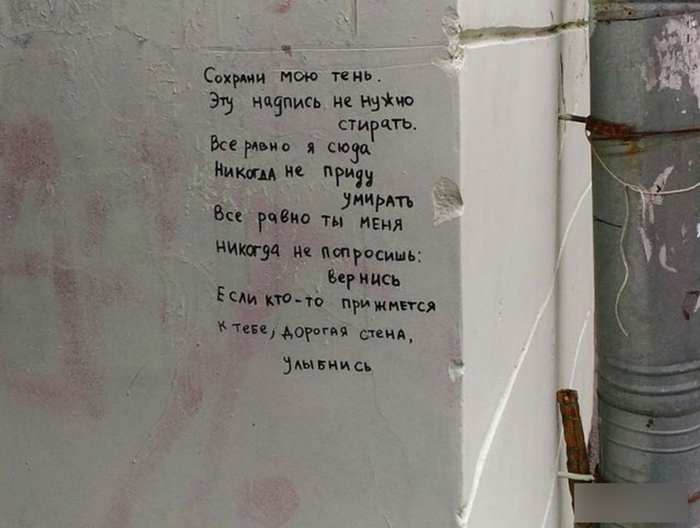 Сохрани мою тень.
Эту надпись не нужно
стирать.
Все равно я сюда
никогда не приду
умирать
Все равно ты меня
никогда не попросишь:
вернись
Если кто-то прижмется
к тебе, дорогая стена,
улыбнись